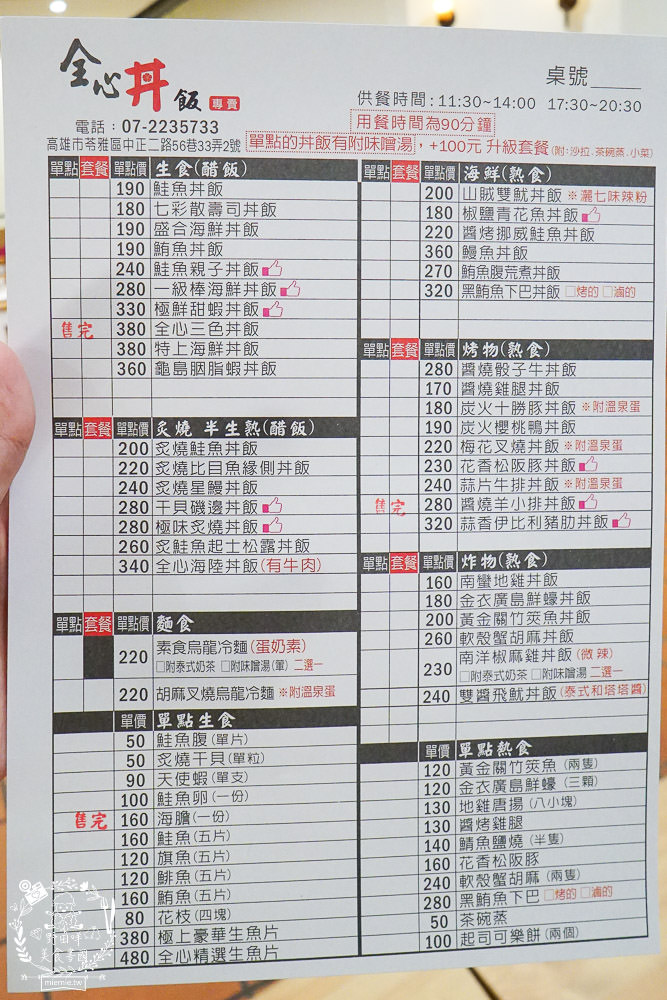 全心丼飯 專賣
桌號
供餐時間:11:30~14:00 17:30~20:30
用餐時間為90分鐘
電話:07-2235733
高雄市苓雅區中正二路56巷33弄2號
單點的丼飯有附味噌湯,+100元 升級套餐(附:沙拉.茶碗蒸.小菜)
單點 套餐 單點價 生食(醋飯)
190 鮭魚丼飯
180 七彩散壽司丼飯
190 盛合海鮮丼飯
190 鮪魚丼飯
240 鮭魚親子丼飯
280 一級棒海鮮丼飯
330 極鮮甜蝦丼飯
售完 380 全心三色丼飯
380 特上海鮮丼飯
360 龜島胭脂蝦丼飯
單點 套餐 單點價 炙燒 半生熟(醋飯)
200 炙燒鮭魚丼飯
220 炙燒比目魚緣側丼飯
240 炙燒星鰻丼飯
280 干貝磯邊丼飯
280 極味炙燒丼飯
260 炙鮭魚起士松露丼飯
340 全心海陸丼飯(有牛肉)
單點 套餐 單點價 麵食
220 素食烏龍冷麵(蛋奶素)
□附泰式奶茶 □附味噌湯(葷) 二選一
220 胡麻叉燒烏龍冷麵 ※附溫泉蛋
單價 單點生食
50 鮭魚腹(單片)
50 炙燒干貝(單粒)
90 天使蝦(單支)
100 鮭魚卵(一份)
售完 160 海膽(一份)
160 鮭魚(五片)
120 旗魚(五片)
120 鯡魚(五片)
160 鮪魚(五片)
80 花枝(四塊)
380 極上豪華生魚片
480 全心精選生魚片
單點 套餐 單點價 海鮮(熟食)
200 山賊雙魷丼飯 ※灑七味辣粉
180 椒鹽青花魚丼飯
220 醬烤挪威鮭魚丼飯
360 鰻魚丼飯
270 鮪魚腹荒煮丼飯
320 黑鮪魚下巴丼飯 □烤的 □滷的
單點 套餐 單點價 烤物(熟食)
280 醬燒骰子牛丼飯
170 醬燒雞腿丼飯
180 炭火十勝豚丼飯 ※附溫泉蛋
190 炭火櫻桃鴨丼飯
220 梅花叉燒丼飯 ※附溫泉蛋
230 花香松阪豚丼飯
240 蒜片牛排丼飯 ※附溫泉蛋
售完 280 醬燒羊小排丼飯
320 蒜香伊比利豬肋丼飯
單點 套餐 單點價 炸物(熟食)
160 南蠻地雞丼飯
180 金衣廣島鮮蠔丼飯
200 黃金關竹筴魚丼飯
260 軟殼蟹胡麻丼飯
230 南洋椒麻雞丼飯(微辣)
□附泰式奶茶 □附味噌湯 二選一
240 雙醬飛魷丼飯(泰式和塔塔醬)
單價 單點熟食
120 黃金關竹筴魚(兩隻)
120 金衣廣島鮮蠔(三顆)
130 地雞唐揚(八小塊)
130 醬烤雞腿
140 鯖魚鹽燒(半隻)
160 花香松阪豚
240 軟殼蟹胡麻(兩隻)
280 黑鮪魚下巴 □烤的 □滷的
50 茶碗蒸
100 起司可樂餅(兩個)
美食書園
miemie.tw